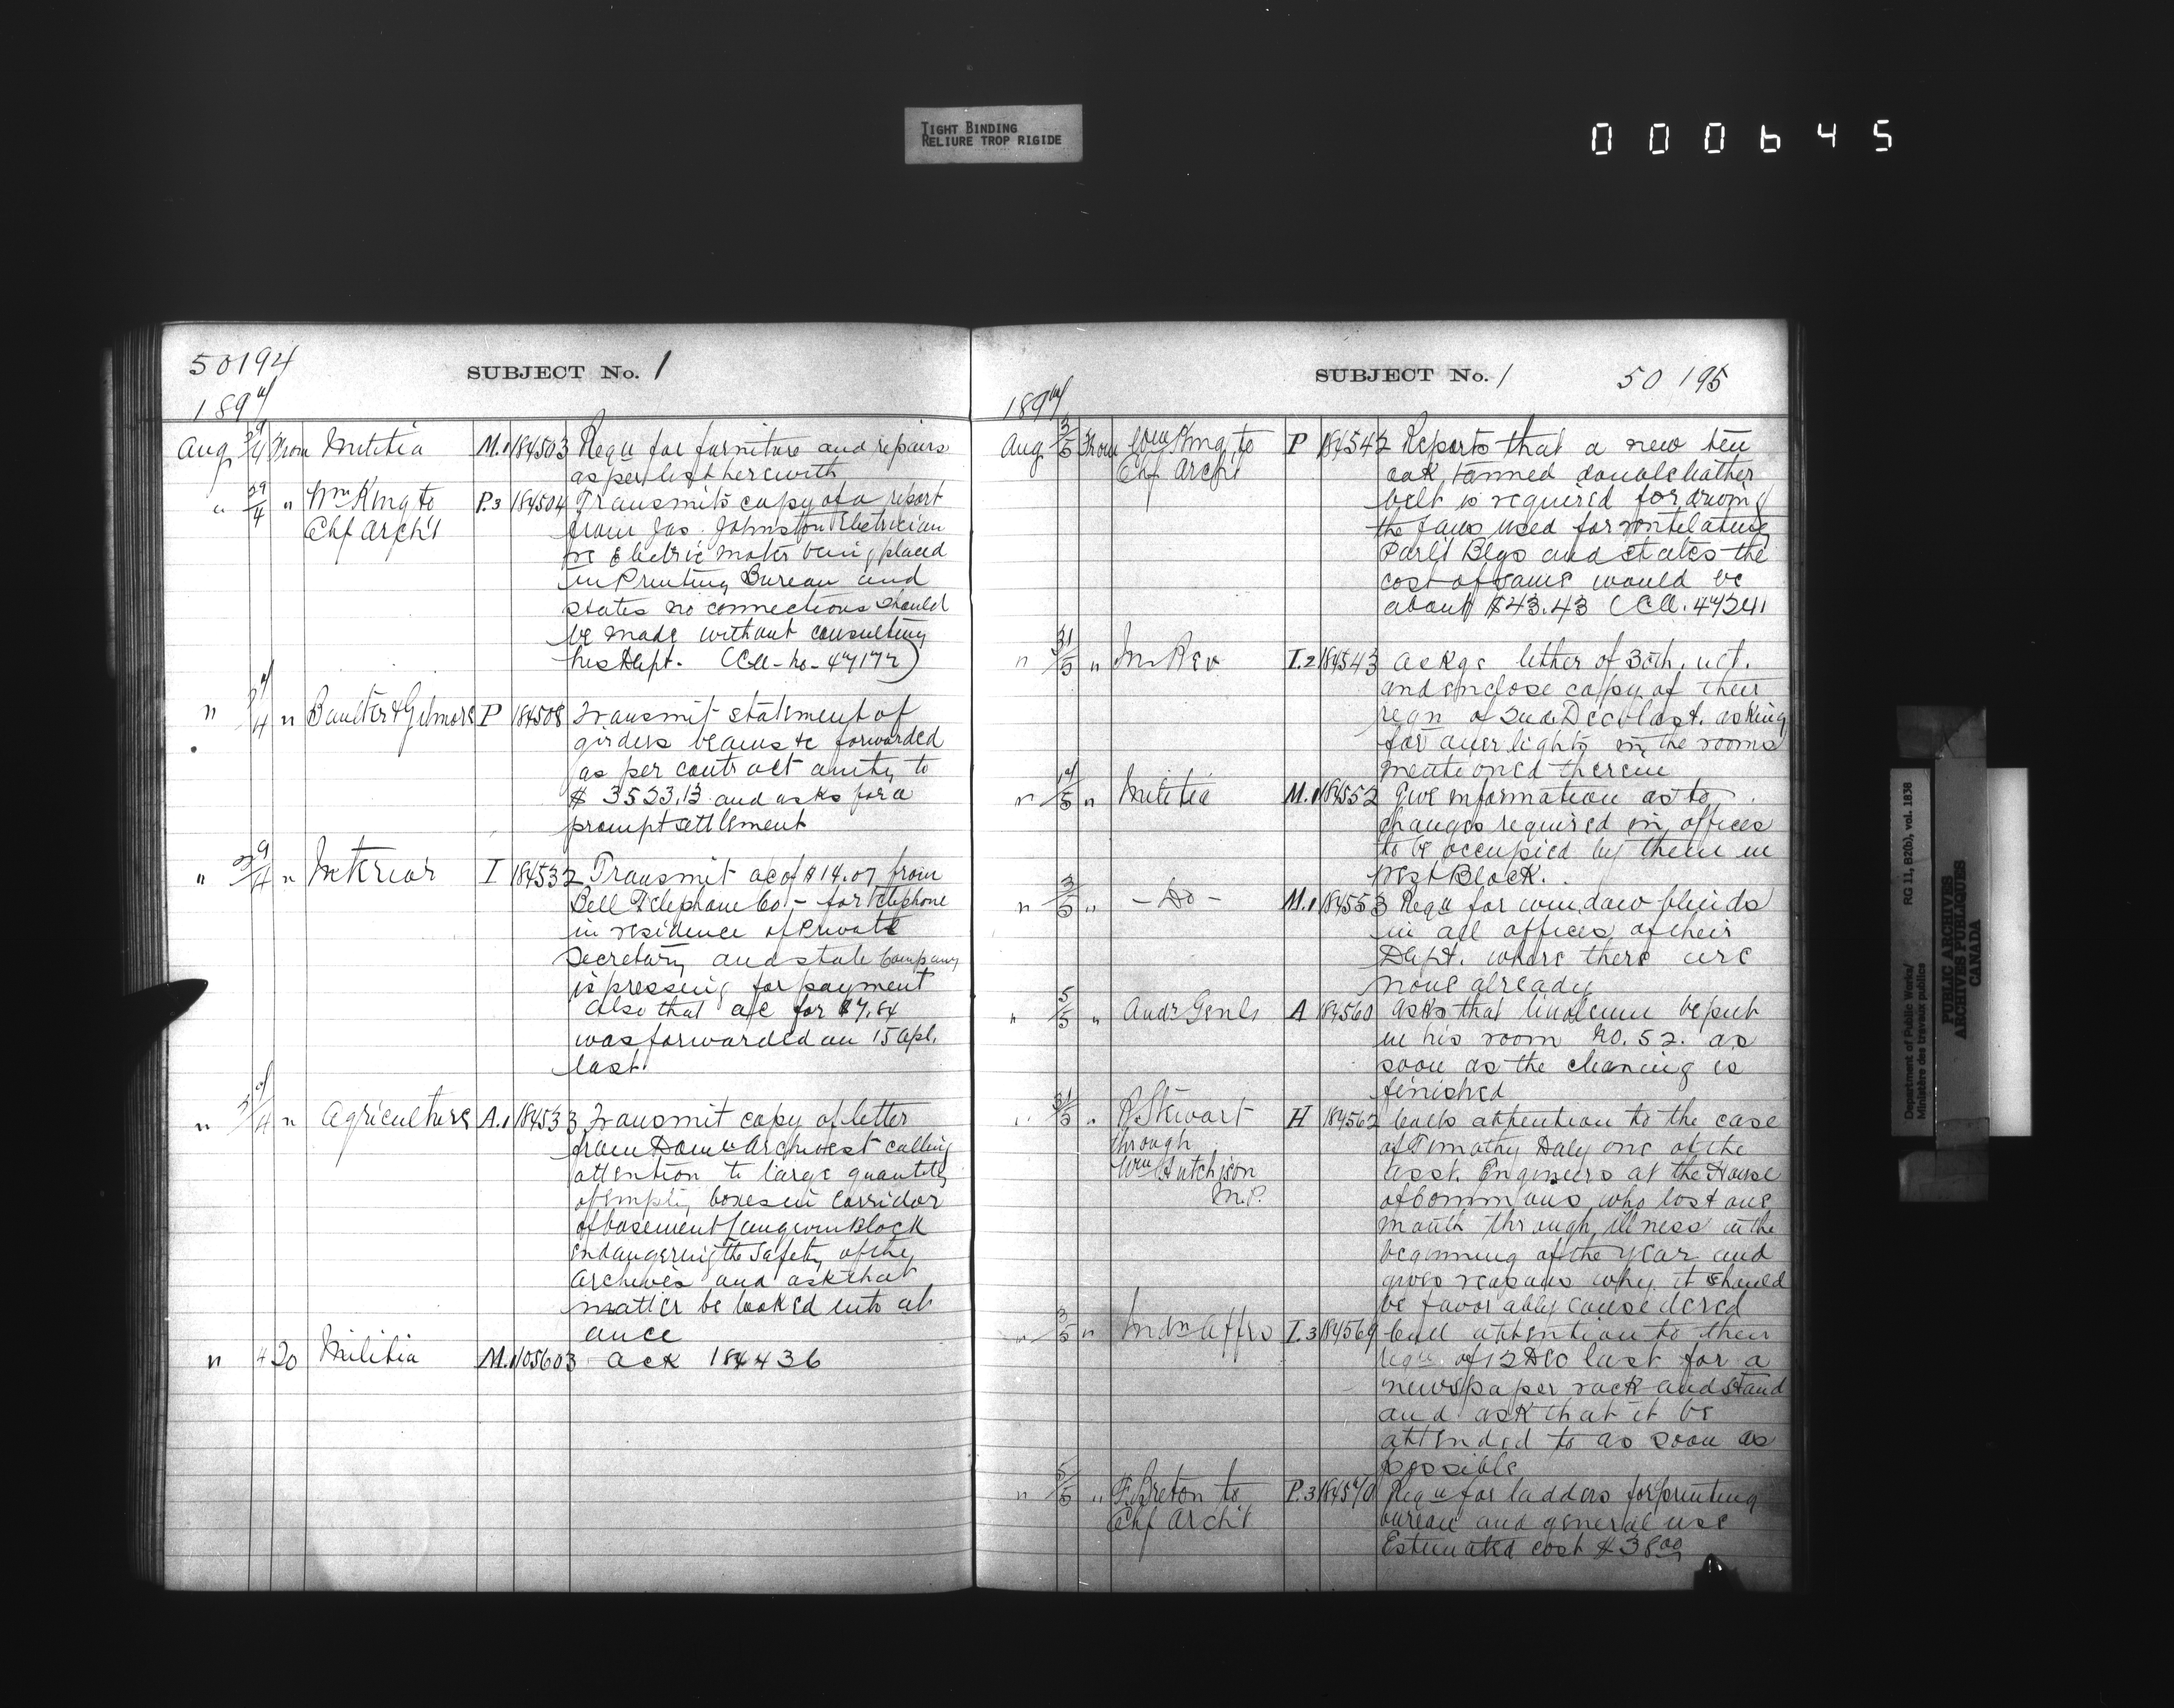 TIGHT BINDING
RELIURE TROP RIGIDE
000645
50194
SUBJECT No. 1
189
Aug From Militia M.1 184503 Requ for furniture and repairs
as per list herewith
" 29/4 " Wm King to P.3 184504 Transmits copy of a report
Chf Arch't from Jas. Johnston Electrician
re Electric motor being placed
in Printing Bureau and
states no connections should
be made without consulting
his Dept. (Cll- no- 47172)
" " Baulter & Gilmore P 184508 Transmit statement of
girders beams &c forwarded
as per contract amtg to
$ 3523.13 and asks for a
prompt settlement
" 29/4 " Interior I 184532 Transmit ac of $14.07 from
Bell Telephone Co - for Telephone
in residence of Private
Secretary and state Company
is pressing for payment
Also that a/c for $7.84
was forwarded on 15 Apl.
last.
" " Agriculture A.1 184533 Transmit copy of letter
from Domn Archivest calling
attention to large quantity
of empty boxes in corridor
of basement Langevin Block
endangering the safety of the
Archives and ask that
matter be looked into at
once
" 4 20 Militia M.1 105603 ack 184436
SUBJECT No. 1 50195
189
Aug 3/5 From Wm King to P 184542 Reports that a new ten
Chf Arch't oak tanned double leather
belt is required for driving
the fans used for ventelating
Parl't Blgs and states the
cost of same would be
about $43.43 (Cll. 47241
" 31/5 " In Rev I.2 184543 Ackge letter of 30th. ult.
and enclose copy of their
reqn of 2nd Dec last. asking
for over lights in the rooms
mentioned therein
" " Militia M.1 184552 Give information as to
changes required in offices
to be occupied by them in
West Block.
" 3/5 " - Do - M.1 184553 Requ for window blinds
in all offices of their
Dept. where there are
none already
" 5/5 " Audr Genls A 184560 Asks that linoleum be put
in his room No. 52. as
soon as the cleaning is
finished
" 31/3 " R Stewart H 184562 Calls attention to the case
through of Timothy Daly one of the
Wm Hutchison asst. Engineers at the House
M.P. of Commons who lost one
month through illness in the
beginning of the year and
gives reasons why it should
be favorably considered
" 3/5 " Indn Affrs I.3 184569 Call attention to their
requ. of 12 Dec last for a
newspaper rack and stand
and ask that it be
attended to as soon as
possible
" 5/5 " F. Breton to P.3 184570 Requ for ladders for printing
Chf Arch't. bureau and general use
Estimated cost $38.00
Department of Public Works/
Ministère des travaux publics
RG 11, B2(b), vol. 1838
PUBLIC ARCHIVES
ARCHIVES PUBLIQUES
CANADA